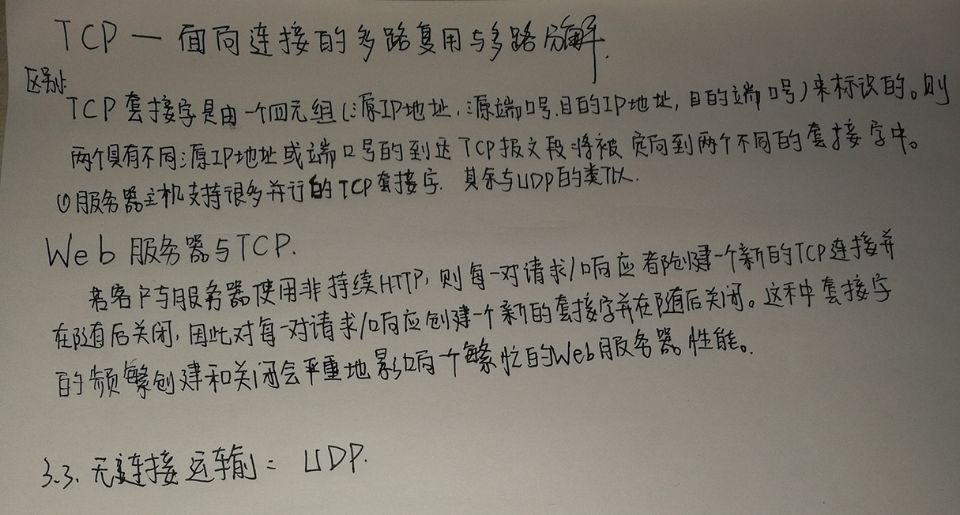 TCP — 面向连接的多路复用与多路分解.
区别:
TCP套接字是由一个四元组(源IP地址,源端口号,目的IP地址,目的端口号)来标识的。则
两个具有不同源IP地址或端口号的到达TCP报文段将被定向到两个不同的套接字中。
①服务器主机支持很多并行的TCP套接字. 其余与UDP的类似.
Web服务器与TCP.
若客户与服务器使用非持续HTTP,则每一对请求/响应都创建一个新的TCP连接并
在随后关闭,因此对每一对请求/响应创建一个新的套接字并在随后关闭。这种套接字
的频繁创建和关闭会严重地影响一个繁忙的Web服务器性能。
3.3.无连接运输: UDP.